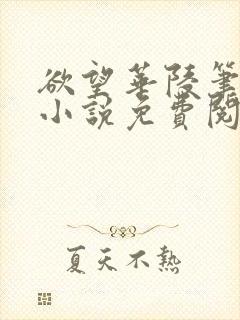 欲望華陵筆
小説免費閱
夏天不熱